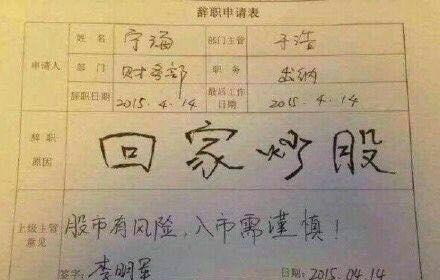 辞职申请表
申请人 姓名 宁海 部门主管 于浩
部门 财务部 职务 出纳
辞职日期 2015.4.14 最后工作日期 2015.4.14
辞职原因 回家炒股
上级主管意见 股市有风险,入市需谨慎!
签字: 李明军 日期: 2015.04.14